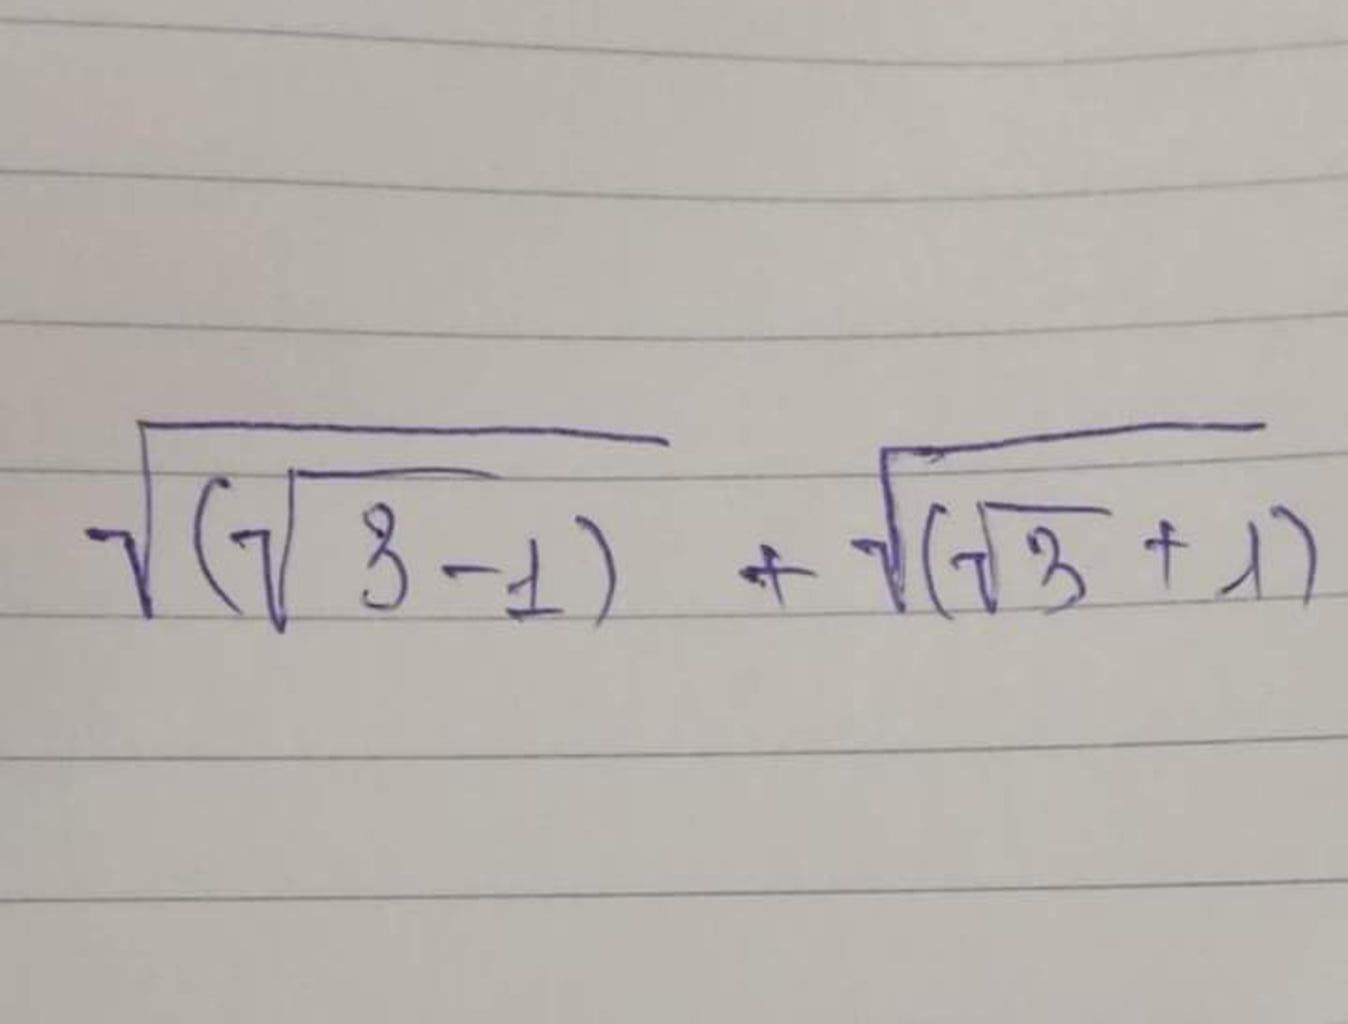 √(√3-1) + √(√3+1)